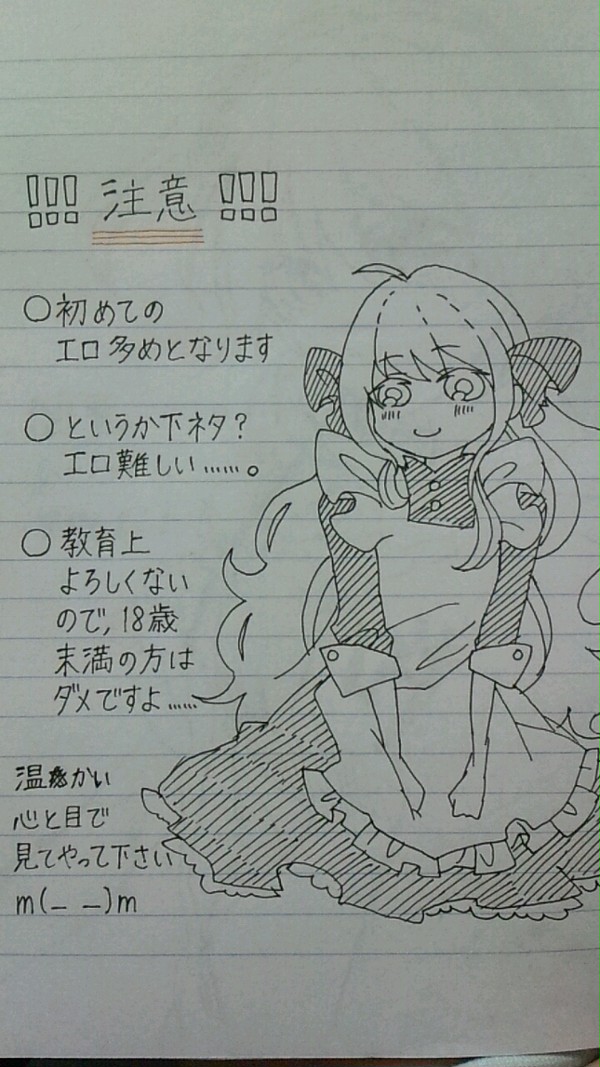 !!! 注意 !!!
○初めての
エロ多めとなります
○というか下ネタ?
エロ難しい……。
○教育上
よろしくない
ので,18歳
末満の方は
ダメですよ……
温かい
心と目で
見てやって下さい
m(_ _)m